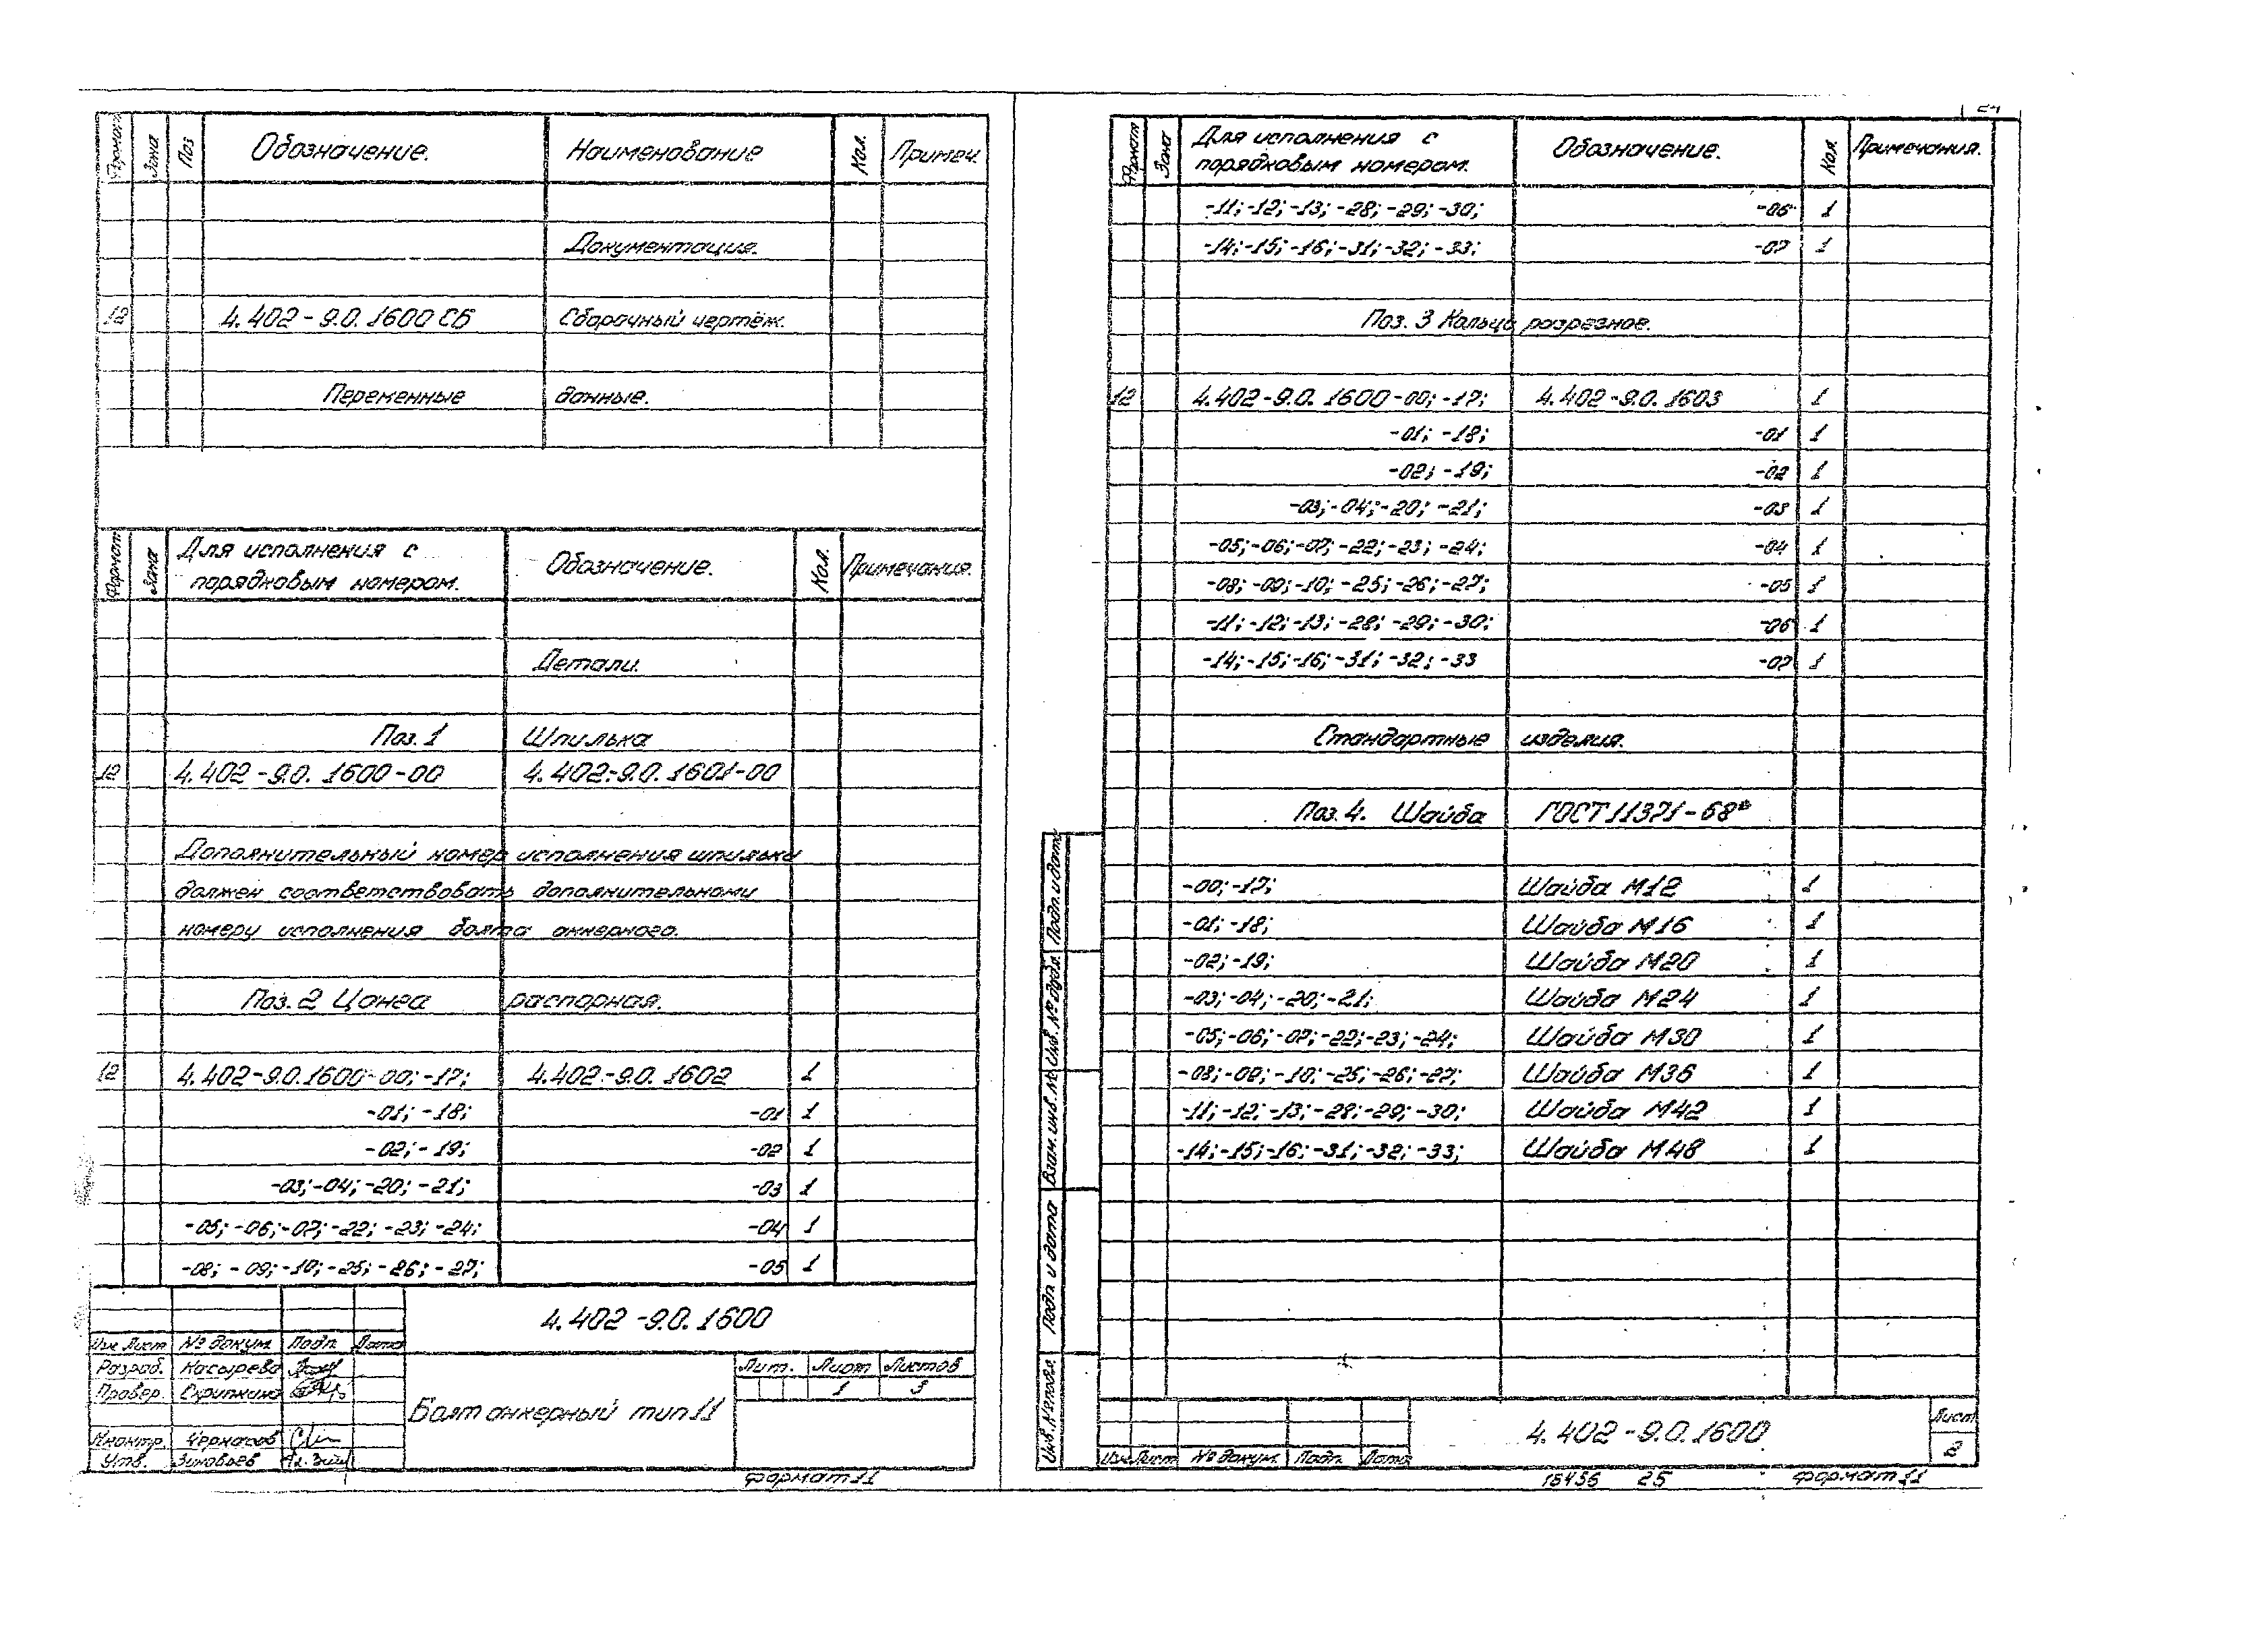 Формат Зона Поз Обозначение. Наименование Кол. Примеч.
Документация.
12 4.402-9.0.1600 СБ Сборочный чертёж.
Переменные данные.
Формат Зона Для исполнения с порядковым номером. Обозначение. Кол. Примечания.
Детали.
Поз. 1 Шпилька
12 4.402-9.0.1600-00 4.402-9.0.1601-00
Дополнительный номер исполнения шпильки
должен соответствовать дополнительному
номеру исполнения болта анкерного.
Поз. 2 Цанга распорная.
12 4.402-9.0.1600-00; -17; 4.402-9.0.1602 1
-01; -18; -01 1
-02; -19; -02 1
-03; -04; -20; -21; -03 1
-05; -06; -07; -22; -23; -24; -04 1
-08; -09; -10; -25; -26; -27; -05 1
4.402-9.0.1600
Изм Лист № докум. Подп. Дата
Разраб. Касырева
Провер. Скрипкина
Н.контр. Чернасов
Утв. Зиновьев
Болт анкерный тип 11
Лит. Лист Листов
1 3
Формат 11
Формат Зона Для исполнения с порядковым номером. Обозначение. Кол. Примечания.
-11; -12; -13; -28; -29; -30; -06 1
-14; -15; -16; -31; -32; -33; -07 1
Поз. 3 Кольцо разрезное.
12 4.402-9.0.1600-00; -17; 4.402-9.0.1603 1
-01; -18; -01 1
-02; -19; -02 1
-03; -04; -20; -21; -03 1
-05; -06; -07; -22; -23; -24; -04 1
-08; -09; -10; -25; -26; -27; -05 1
-11; -12; -13; -28; -29; -30; -06 1
-14; -15; -16; -31; -32; -33 -07 1
Стандартные изделия.
Поз. 4. Шайба ГОСТ 11371-68*
-00; -17; Шайба М12 1
-01; -18; Шайба М16 1
-02; -19; Шайба М20 1
-03; -04; -20; -21; Шайба М24 1
-05; -06; -07; -22; -23; -24; Шайба М30 1
-08; -09; -10; -25; -26; -27; Шайба М36 1
-11; -12; -13; -28; -29; -30; Шайба М42 1
-14; -15; -16; -31; -32; -33; Шайба М48 1
Инв. № подл. Подп. и дата Взам. инв. № Инв. № дубл. Подп. и дата
Изм Лист № докум. Подп. Дата
4.402-9.0.1600
Лист
2
15456 25 Формат 11